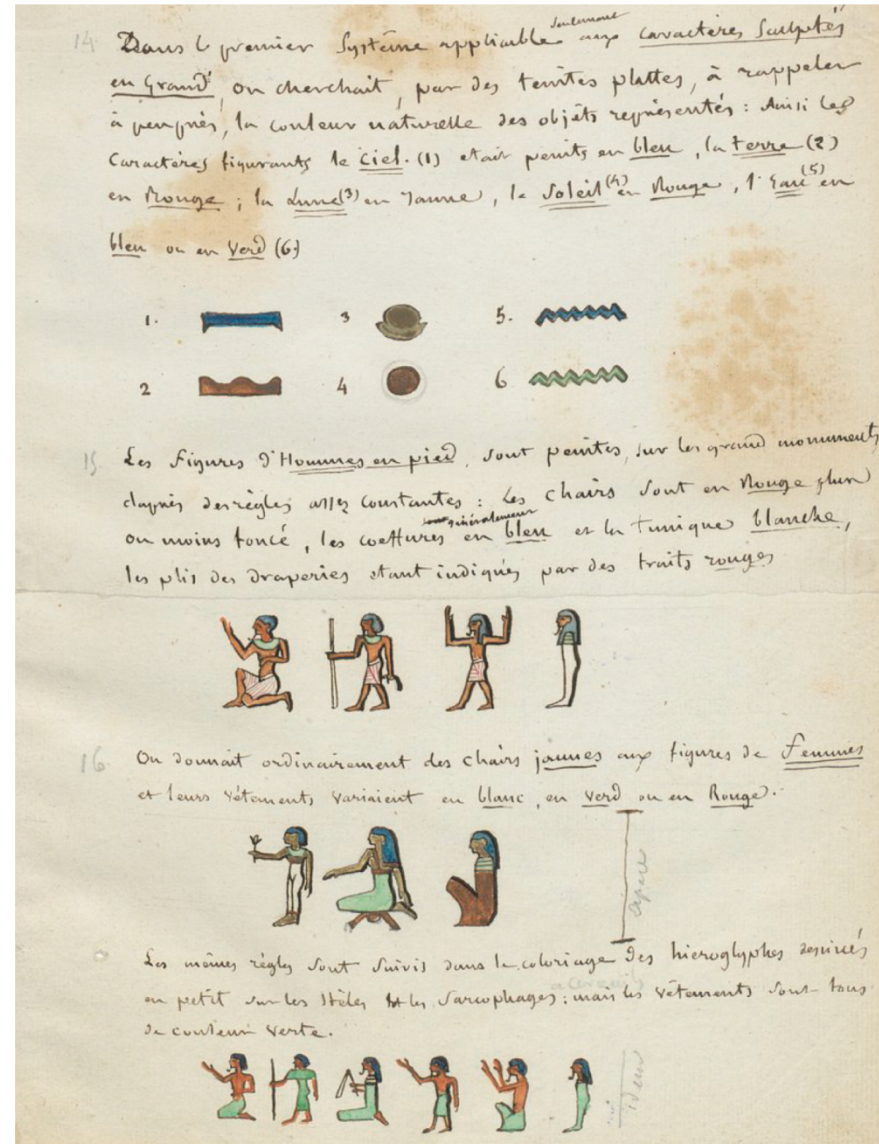 seulement
14 Dans le premier Système applicable aux caractères Sculptés
en Grand, on cherchait, par des teintes plattes, à rappeler
à peuprès, la couleur naturelle des objêts représentés : Ainsi les
Caractères figurants le Ciel. (1) etait peints en bleu, la terre (2)
en Rouge ; la Lune (3) en Jaune, le Soleil (4) en Rouge, l'Eau (5) en
bleu ou en Verd (6.)
1. 3 5.
2 4 6
15 Les Figures d'Hommes en pied, sont peintes, sur les grand monuments
daprès des règles assez constantes : Les chairs sont en Rouge plus
généralement
ou moins foncé, les coeffures en bleu et la tunique blanche,
les plis des draperies etant indiqués par des traits rouges
16. On donnait ordinairement des chairs jaunes aux figures de Femmes
et leurs vêtements variaient en blanc, en verd ou en Rouge.
Les mêmes règles sont suivis dans le coloriage des hieroglyphes dessinés
en petit sur les Stèles les Sarcophages ; mais les vêtements sont tous
de couleur verte.
idem